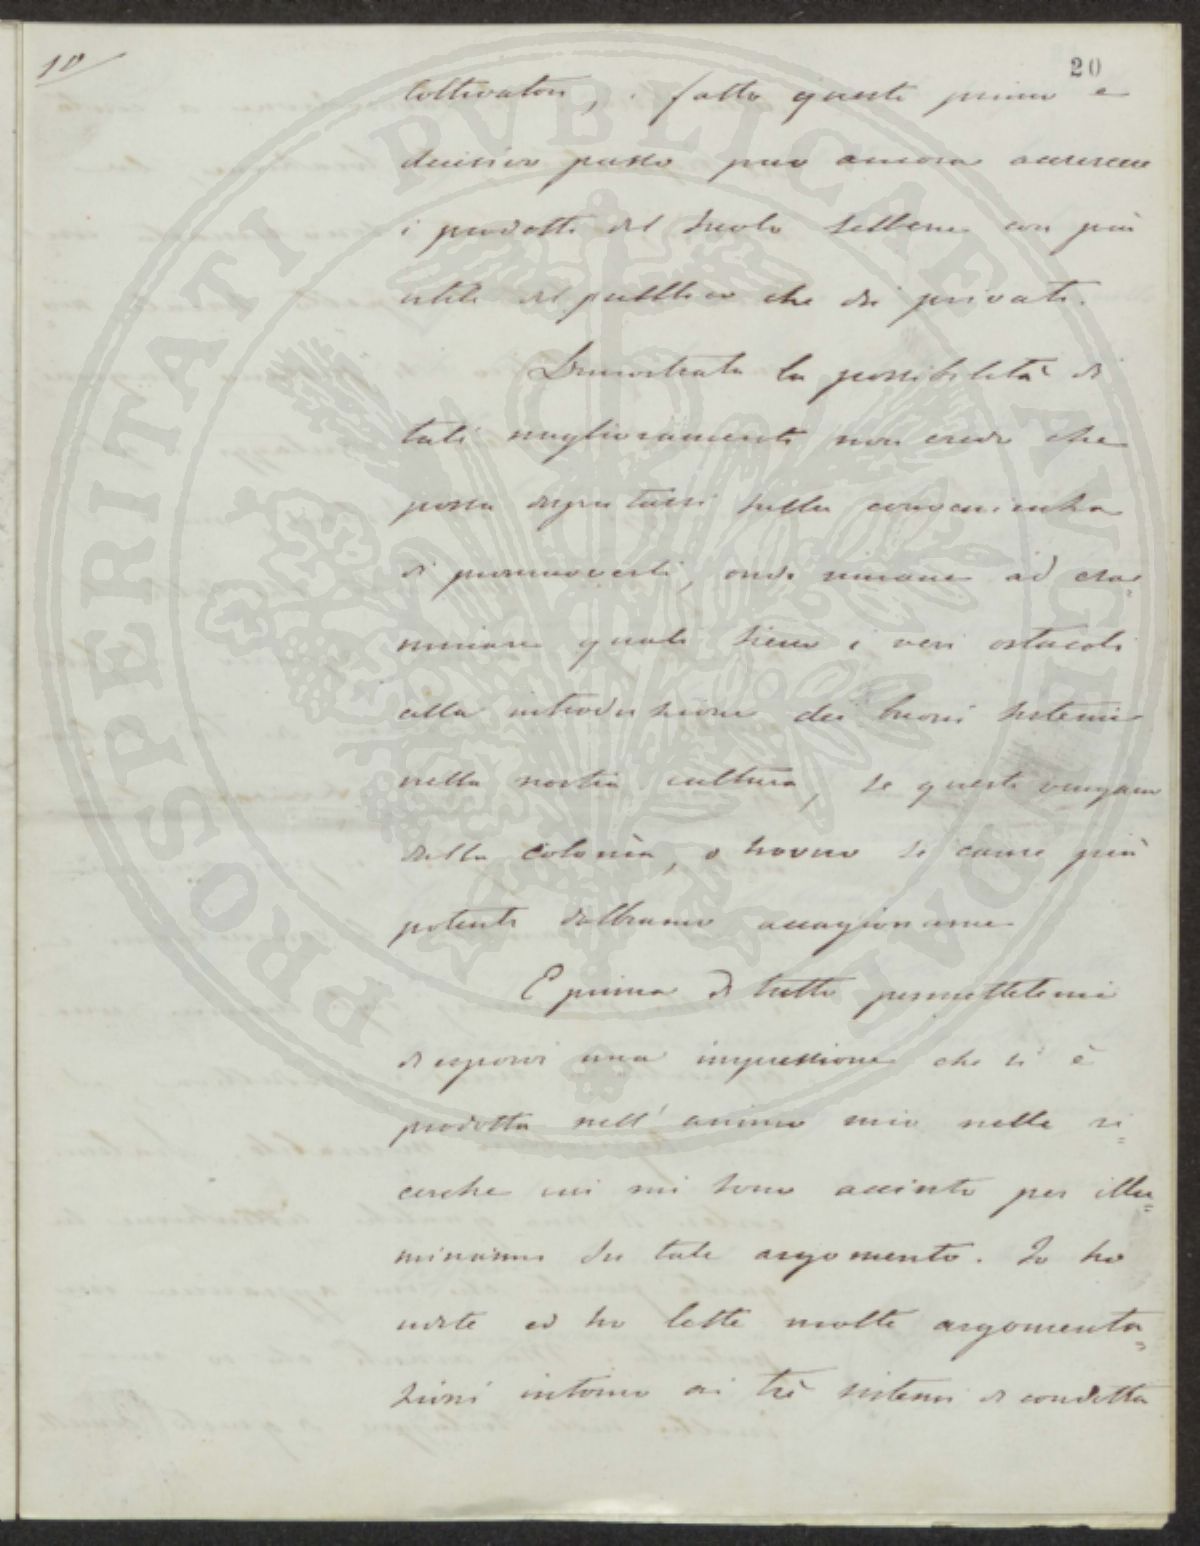 10
20
coltivatori, . fatto questo primo e
decisivo passo può ancora accrescere
i prodotti del suolo sebbene con più
utile del pubblico che dei privati.
Dimostrata la possibilità di
tali miglioramenti non credo che
possa disputarsi sulla convenienza
di promuoverli, onde rimane ad esa=
minare quali sieno i veri ostacoli
alla introduzione dei buoni sistemi
nella nostra cultura, se questi vengano
dalla colonìa, o sovvero se cause più
potenti dobbiamo accagionarne
E prima di tutto permettetemi
di esporvi una impressione che si è
prodotta nell'animo mio nelle ri=
cerche cui mi sono accinto per illu=
minarmi su tale argomento. Io ho
udite ed ho lette molte argomenta=
zioni intorno ai trè sistemi di condotta
PROSPERITATI PVBLICAE AVGENDAE